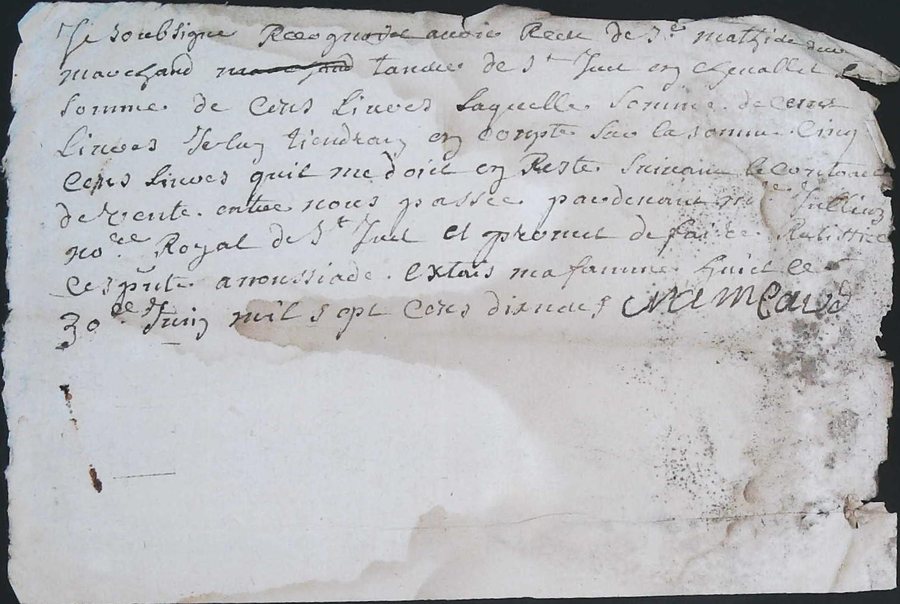 Je soubsigne Recognois avoir Receu de Sr mathieu
marchand tandeur de St Just en chevallet la
somme de cens Livres Laquelle somme de cens
Livres Je luy tiendray en compte sur la somme cinq
cens Livres quil me doit en Reste suivant le contrat
de vente entre nous passée pardevant me Jullien
nore Royal de St Just et promet de faire Ratiffier
ces pnte a ma famme huict ce
30e Juin mil sept cens disneuf